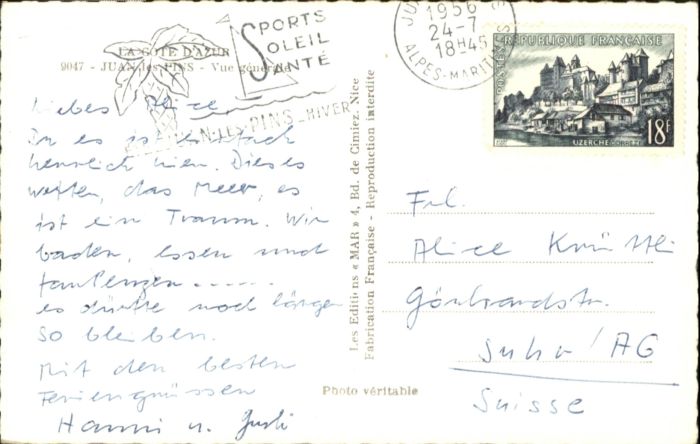 LA COTE D'AZUR
9047 - JUAN-les-PINS - Vue générale
SPORTS
SOLEIL
SANTÉ
JUAN-LES-PINS-HIVER
Liebes Alice
Du es ist einfach
herrlich hier. Dieses
Wetter, das Meer, es
ist ein Traum. Wir
baden, essen und
faulenzen ......
es dürfte noch länger
so bleiben.
Mit den besten
Feriengrüssen
Hanni u.
Les Editions « MAR » 4, Bd. de Cimiez, Nice
Fabrication Française - Reproduction interdite
Photo véritable
1956
24-7
18H45
ALPES-MARITIMES
POSTES
REPUBLIQUE FRANÇAISE
UZERCHE-CORREZE
18F
Frl.
Alice
Suhr / AG
Suisse